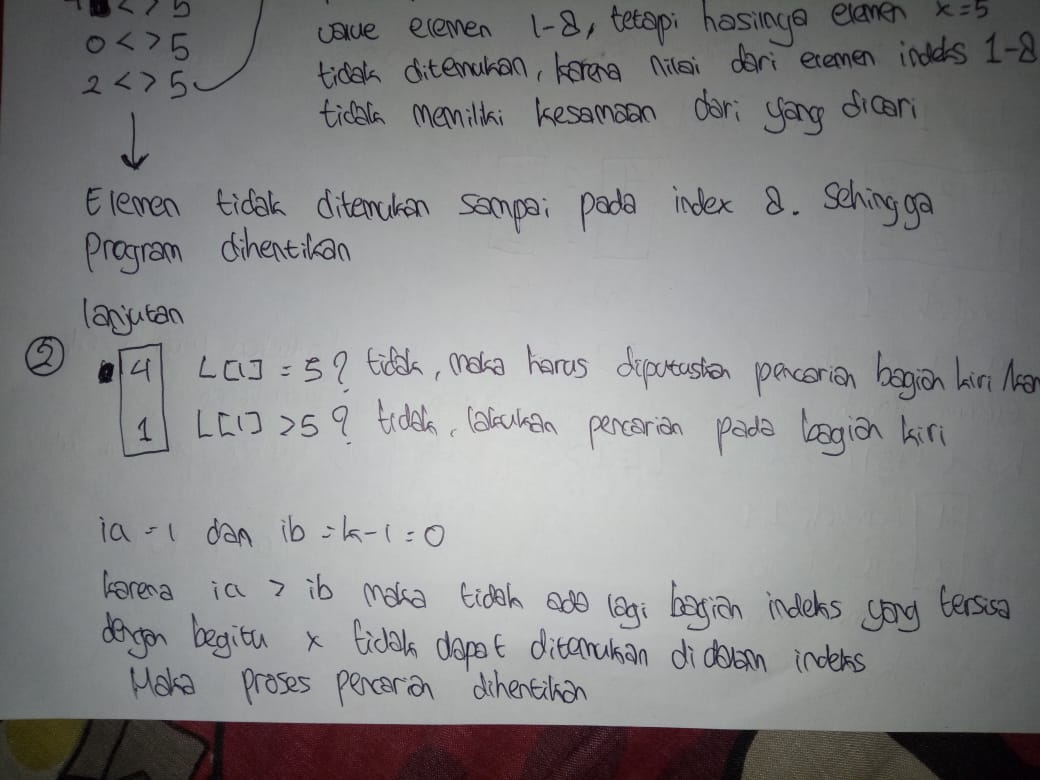 <> 5
0 <> 5
2 <> 5
value elemen 1-8, tetapi hasilnya elemen x=5
tidak ditemukan, karena nilai dari elemen indeks 1-8
tidak memiliki kesamaan dari yang dicari
Elemen tidak ditemukan sampai pada index 8. Sehingga
Program dihentikan
lanjutan
②
4 L[1] = 5? tidak, maka harus diputuskan pencarian bagian kiri /kan
1 L[1] >5? tidak, lakukan pencarian pada bagian kiri
ia = 1 dan ib = k-1 = 0
karena ia > ib maka tidak ada lagi bagian indeks yang tersisa
dengan begitu x tidak dapat ditemukan di dalam indeks
Maka proses pencarian dihentikan